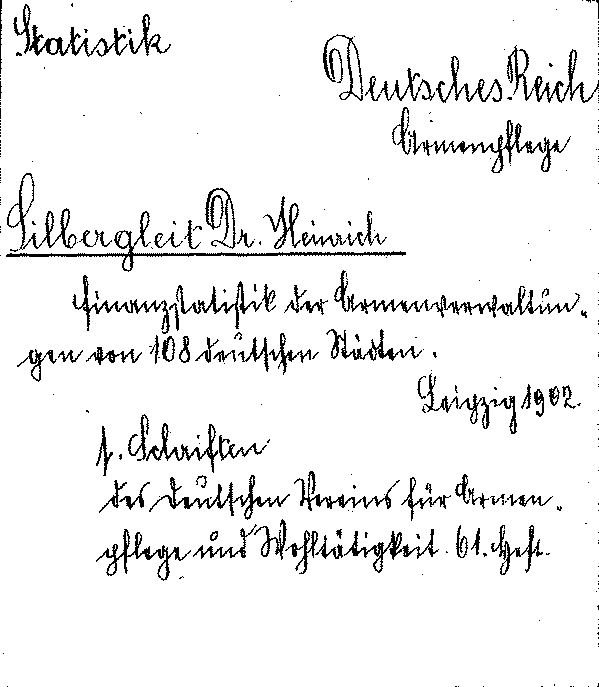 Statistik
Deutsches Reich
Armenpflege
Silbergleit Dr. Heinrich
Finanzstatistik der Armenverwaltun-
gen von 108 deutschen Städten.
Leipzig 1902.
s. Schriften
des deutschen Vereins für Armen-
pflege und Wohltätigkeit. 61. Heft.